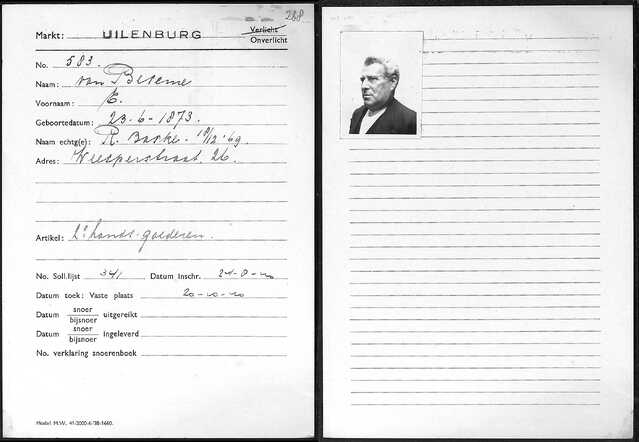 288
Markt: UILENBURG Verlicht
Onverlicht
No. 583.
Naam: van Beseme
Voornaam: E.
Geboortedatum: 23-6-1873.
Naam echtg(e): R. Barke 18/12 '69
Adres: Weesperstraat 26.
Artikel: 2e hands-goederen.
No. Soll.lijst 341 Datum Inschr. 24-8-20
Datum toek: Vaste plaats 20-10-20
Datum snoer/bijsnoer uitgereikt
Datum snoer/bijsnoer ingeleverd
No. verklaring snoerenboek
Model M.W. 41-2000-6-'38-1660.